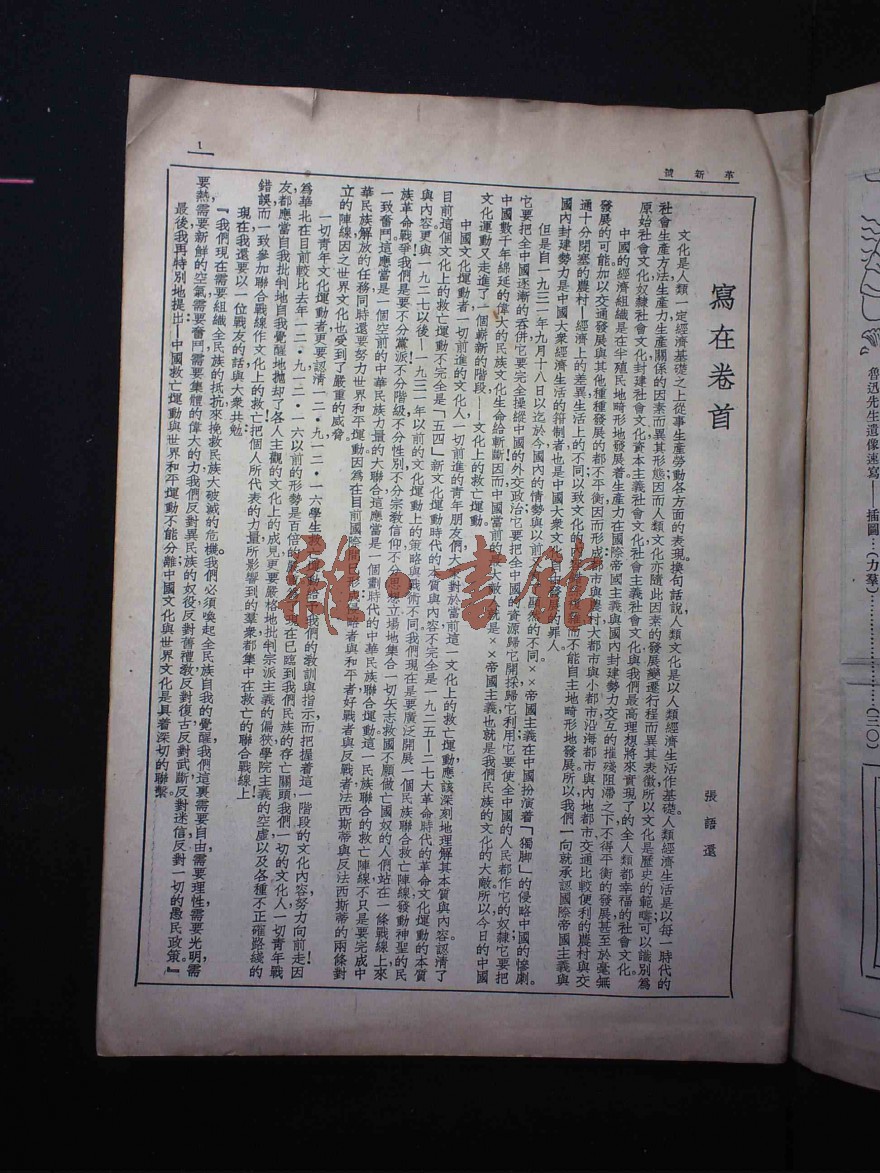 革新號
1
寫在卷首
張語還
文化是人類一定經濟基礎之上從事生產勞動各方面的表現。換句話說人類文化是以人類經濟生活作基礎。人類經濟生活是以每一時代的
社會生產方法生產力生產關係的因素而異其形態因而人類文化亦隨此因素的發展變遷行程而異其表徵所以文化是歷史的範疇可以識別為
原始社會文化奴隸社會文化封建社會文化資本主義社會文化社會主義社會文化與我們最高理想將來實現了的全人類都幸福的社會文化。
中國的經濟組織是在半殖民地畸形地發展着。生產力在國際帝國主義與國內封建勢力交互的摧殘阻滯之下不得平衡的發展甚至於毫無
發展的可能加以交通發展與其他種種發展的都不平衡因而形成都市與農村大都市與小都市沿海都市與內地都市交通比較便利的農村與交
通十分閉塞的農村—經濟上的差異生活上的不同以致文化的內 而不能自主地畸形地發展所以我們一向就承認國際帝國主義與
國內封建勢力是中國大衆經濟生活的箝制者也是中國大衆文化自由發展的罪人。
但是自一九三一年九月十八日以迄於今國內的情勢與以前 顯然的不同××帝國主義在中國扮演着「獨脚」的侵略中國的慘劇。
它要把全中國逐漸的吞併它要完全操縱中國的外交政治它要把全中國的資源歸它開採歸它利用它要使全中國的人民都作它的奴隸它要把
中國數千年綿延的偉大的民族文化生命給斬斷因而中國當前的 大敵 就是××帝國主義也就是我們民族的文化的大敵所以今日的中國
文化運動又走進了一個嶄新的階段——文化上的救亡運動。
中國文化運動者一切前進的文化人一切前進的青年朋友們大衆對於當前這一文化上的救亡運動應該深刻地理解其本質與內容。認清了
目前這個文化上的救亡運動不完全是「五四」新文化運動時代的本質與內容不完全是一九二五—二七大革命時代的革命文化運動的本質
與內容更與一九二七以後—一九三一年以前的文化運動上的策略與戰術不同。我們現在是要廣泛開展一個民族聯合救亡陣線發動神聖的民
族革命戰爭我們是要不分黨派不分階級不分性別不分宗教信仰不分思想立場地集合一切矢志救國不願做亡國奴的人們站在一條戰線上來
一致奮鬥這應當是一個空前的中華民族力量的大聯合這應當是一個劃時代的中華民族聯合運動這一民族聯合的救亡陣線不只是要完成中
華民族解放的任務同時還要努力世界和平運動因為在目前國際間 侵略者與和平者好戰者與反戰者法西斯蒂與反法西斯蒂的兩條對
立的陣線因之世界文化也受到了嚴重的威脅。
一切青年文化運動者更要認清一二·九一二·一六學生救亡運動給予我們的教訓與指示而把握着這一階段的文化內容努力向前走因
為華北在目前較比去年一二·九一二·一六以前的形勢是百倍的嚴 現在已臨到我們民族的存亡關頭我們一切的文化人一切青年戰
友都應當自我批判地自我覺醒地拋却了各人主觀的文化上的成見更要嚴格地批判宗派主義的偏狹學院主義的空虛以及各種不正確路綫的
錯誤而一致參加聯合戰線作文化上的救亡把個人所代表的力量所影響到的羣衆都集中在救亡的聯合戰線上！
現在我還要以一位戰友的話與大衆共勉：
『我們現在需要組織全民族的抵抗來挽救民族大破滅的危機我們必須喚起全民族自我的覺醒我們這裏需要自由需要理性需要光明需
要熱需要新鮮的空氣需要奮鬥需要集體的偉大的力我們反對異民族的奴役反對舊禮敎反對復古反對武斷反對迷信反對一切的愚民政策。』
最後我再特別地提出——中國救亡運動與世界和平運動不能分離中國文化與世界文化是具着深切的聯繫。
魯迅先生遺像速寫——插圖…(力羣)…………(三〇)
雜·書館